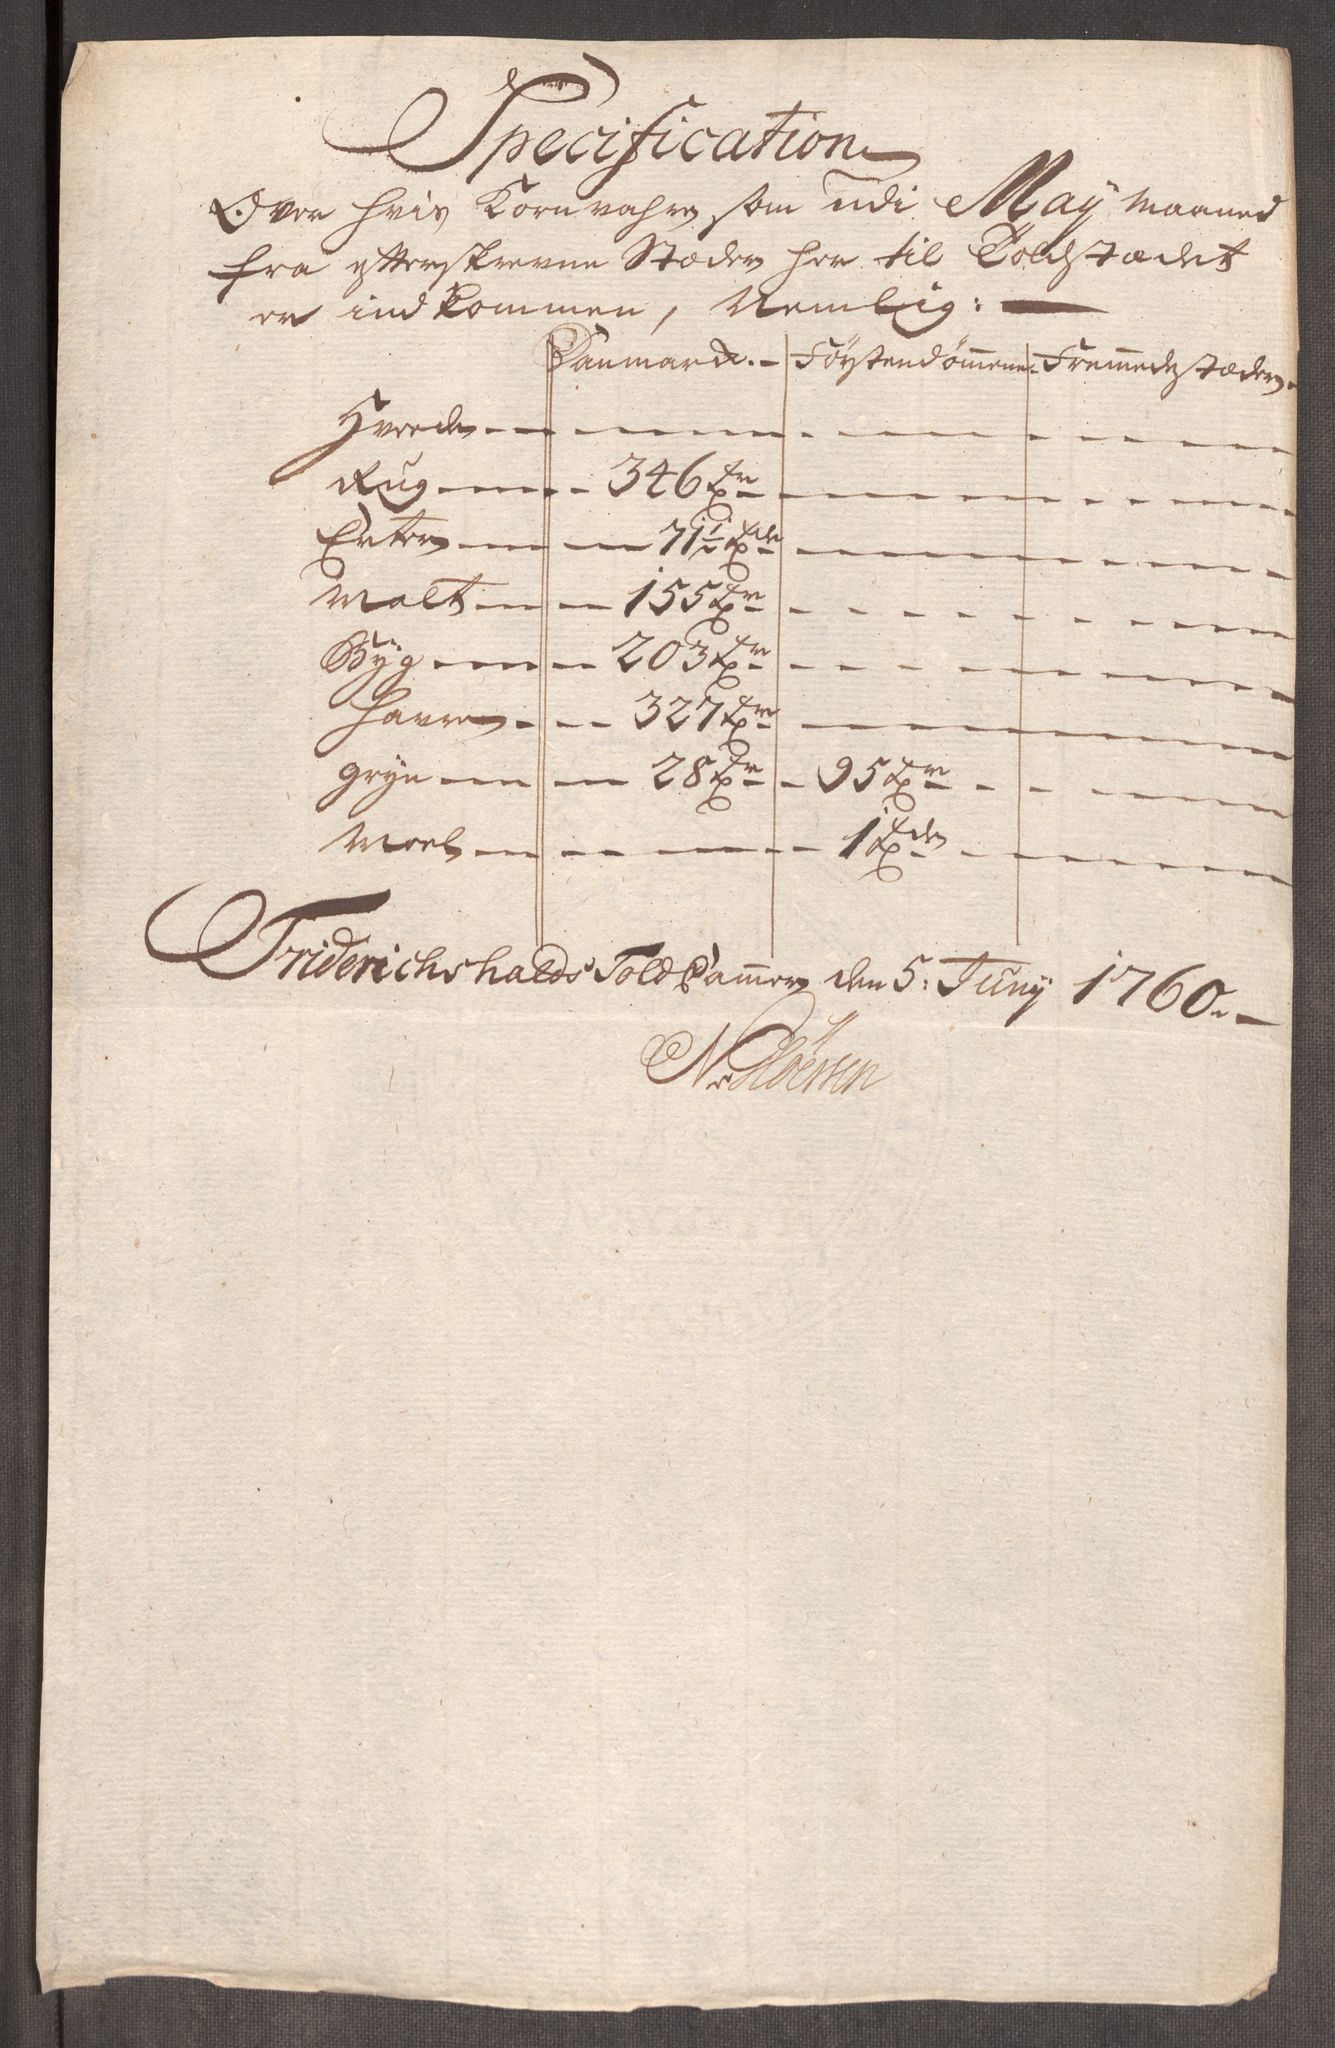 Specification
Over hvis Kornvahre som udi May Maaned
fra efterskrevne Stæder her til Toldstædet
er indkommen, Nemlig:
Danmark. Förstendömmene Fremmedestæder
Hvede
Rug 346 Tr
Erter 71½ Tde
Malt 155 Tr
Byg 203 Tr
Havre 327 Tr
Gryn 28 Tr 95 Tr
Meel 1 Tde
Friderichshalds Told Cammer den 5: Juny 1760.